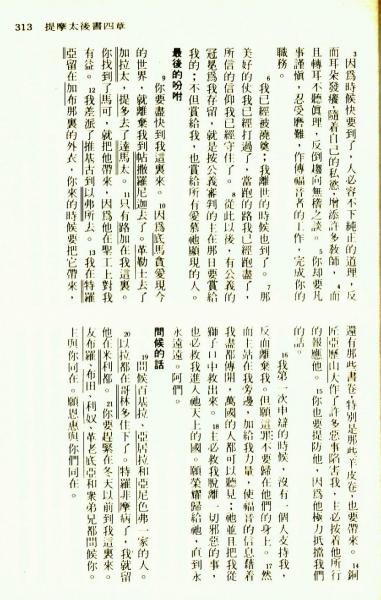 313 提摩太後書四章
3 因爲時候快要到了,人必容不下純正的道理,反
而耳朶發癢,隨着自己的私慾,增添許多教師。 4 而
且轉耳不聽眞理,反倒趨向無稽之談。 5 你却要凡
事謹愼,忍受磨難,作傳福音者的工作,完成你的
職務。
6 我已經被澆奠;我離世的時候也到了。 7 那
美好的仗我已經打過了,當跑的路我已經跑盡了,
所信的信仰我已經守住了。 8 從此以後,有公義的
冠冕爲我存留,就是按公義審判的主在那日要賞給
我的;不但賞給我,也賞給所有愛慕祂顯現的人。
最後的吩咐
9 你要盡快到我這裏來。 10 因爲底馬貪愛現今
的世界,就離棄我到帖撒羅尼迦去了。革勒士去了
加拉太,提多去了達馬太。 11 只有路加在我這裏。
你找到了馬可,就把他帶來,因爲他在聖工上對我
有益。 12 我差派了推基古到以弗所去。 13 我在特羅
亞留在加布那裏的外衣,你來的時候要把它帶來,
還有那些書卷,特別是那些羊皮卷,也要帶來。 14 銅
匠亞歷山大作了許多惡事陷害我,主必按着他所行
的報應他。 15 你也要提防他,因爲他極力抵擋我們
的話。
16 我第一次申辯的時候,沒有一個人支持我,
反而離棄我。但願這罪不要歸在他們的身上。 17 然
而主站在我旁邊,加給我力量,使福音的信息藉着
我盡都傳開,萬國的人都可以聽見;祂並且把我從
獅子口中救出來。 18 主必救我脫離一切邪惡的事,
也必救我進入祂天上的國。願榮耀歸給祂,直到永
永遠遠。阿們。
問候的話
19 問候百基拉、亞居拉和亞尼色弗一家的人。
20 以拉都在哥林多住下了。特羅非摩病了,我就留
他在米利都。 21 你要趕緊在冬天以前到我這裏來。
友布羅、布田、利奴、革老底亞和衆弟兄都問候你。
主與你同在。願恩惠與你們同在。